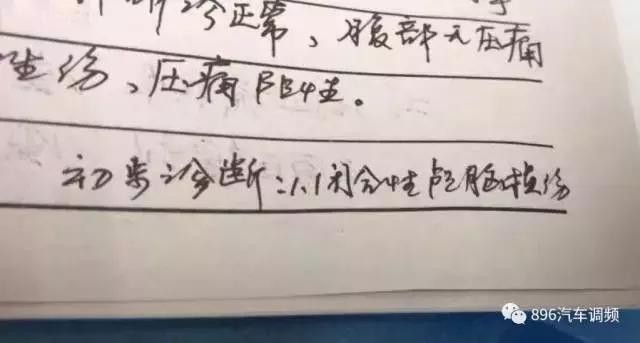 诊正常、腹部无压痛
伤、压痛阳性。
初步诊断:1.闭合性颅脑损伤
896汽车调频